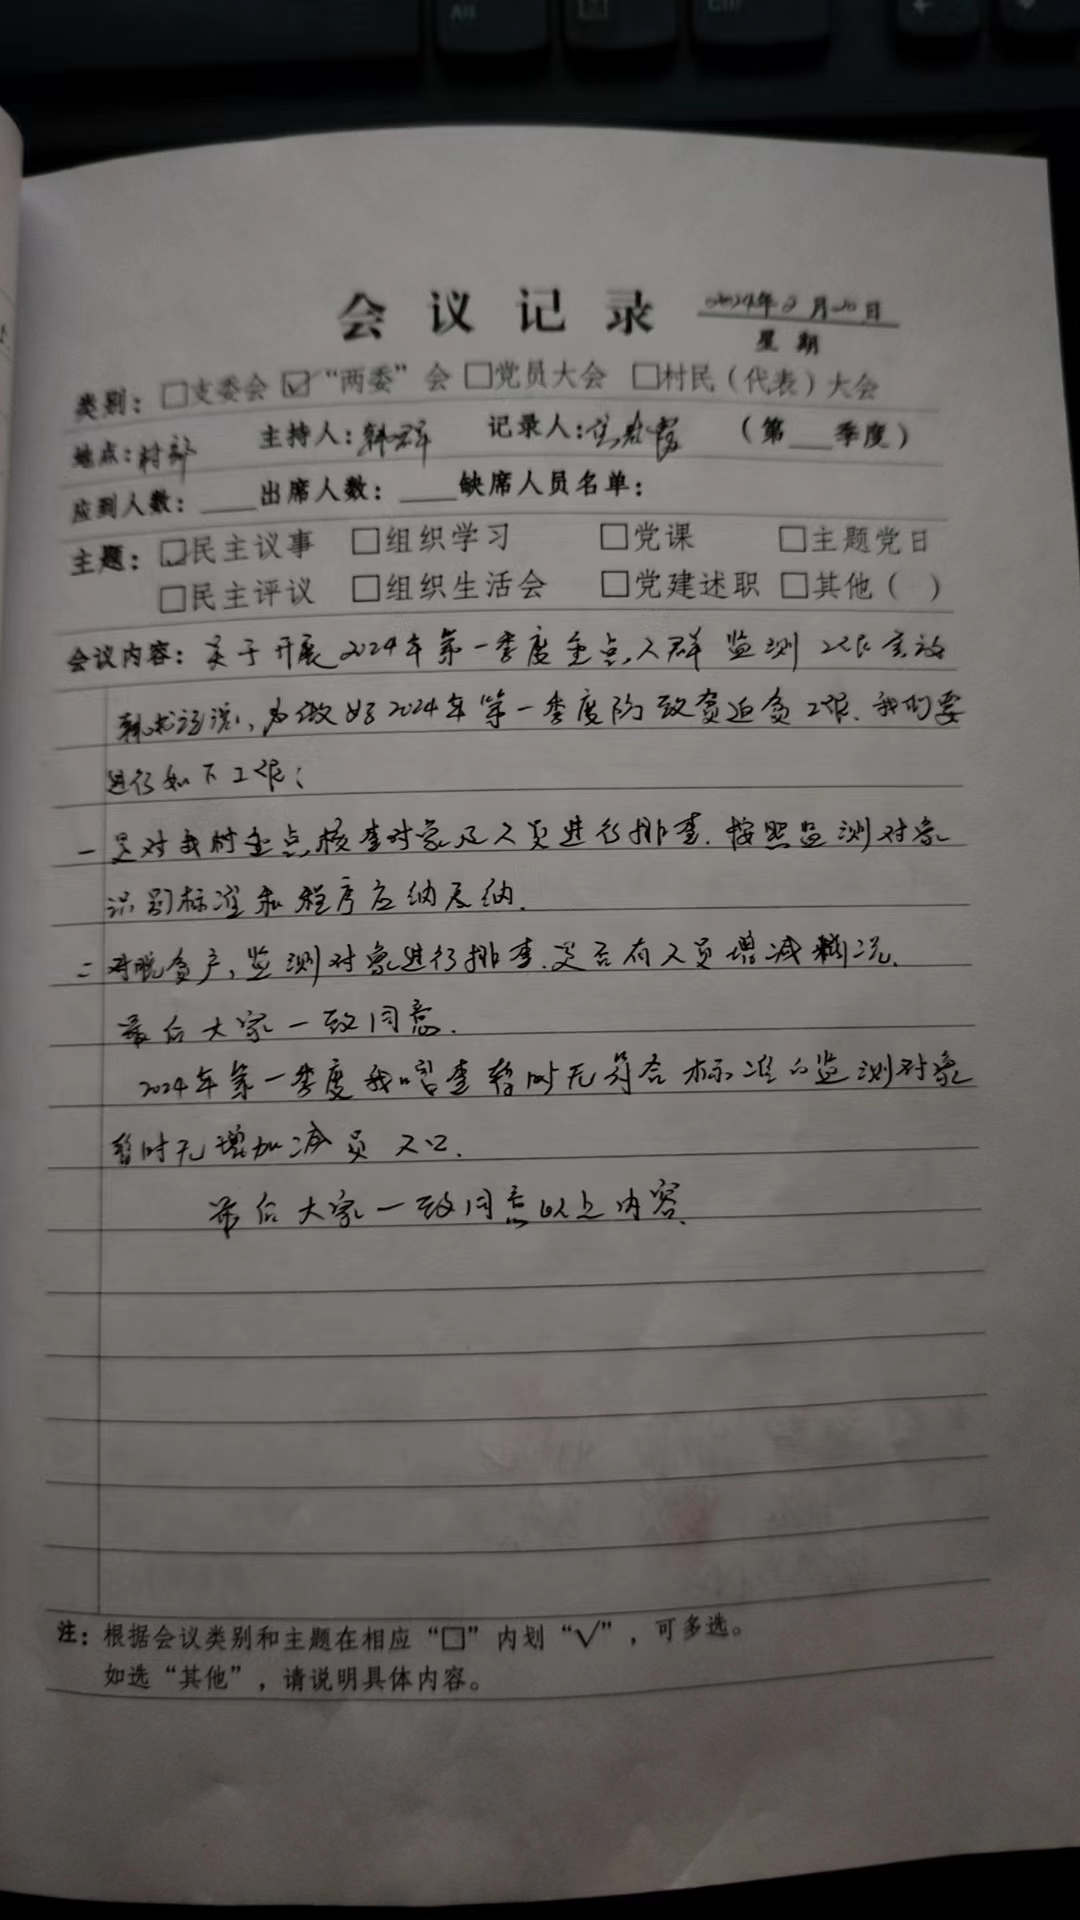 会议记录 2024年2月20日
星期
类别：□支委会 ☑“两委”会 □党员大会 □村民（代表）大会
地点：村部 主持人：韩 记录人： （第___季度）
应到人数：____出席人数：____缺席人员名单：
主题：☑民主议事 □组织学习 □党课 □主题党日
□民主评议 □组织生活会 □党建述职 □其他（ ）
会议内容：关于开展2024年第一季度重点人群监测工作会议
韩书记说：为做好2024年第一季度防致贫返贫工作，我们要
进行如下工作：
一是对我村重点核查对象及人员进行排查，按照监测对象
识别标准和程序应纳尽纳.
二对脱贫户，监测对象进行排查，是否有人员增减情况.
最后大家一致同意.
2024年第一季度我 查暂时无符合标准的监测对象
暂时无增加减员人口.
最后大家一致同意以上内容.
注：根据会议类别和主题在相应“□”内划“√”，可多选。
如选“其他”，请说明具体内容。